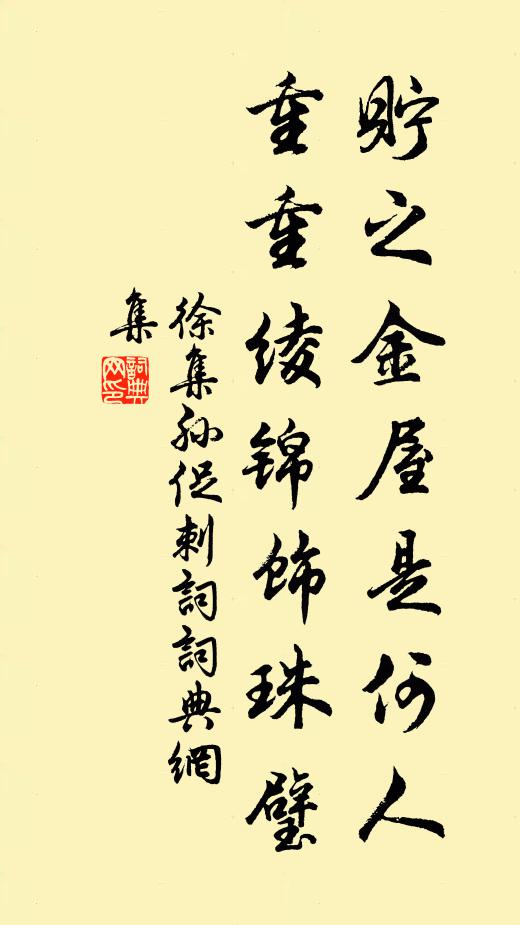 貯之金屋是何人
重重綾錦飾珠璧
徐集孫促刺詞詞典網
集
詞典
网印